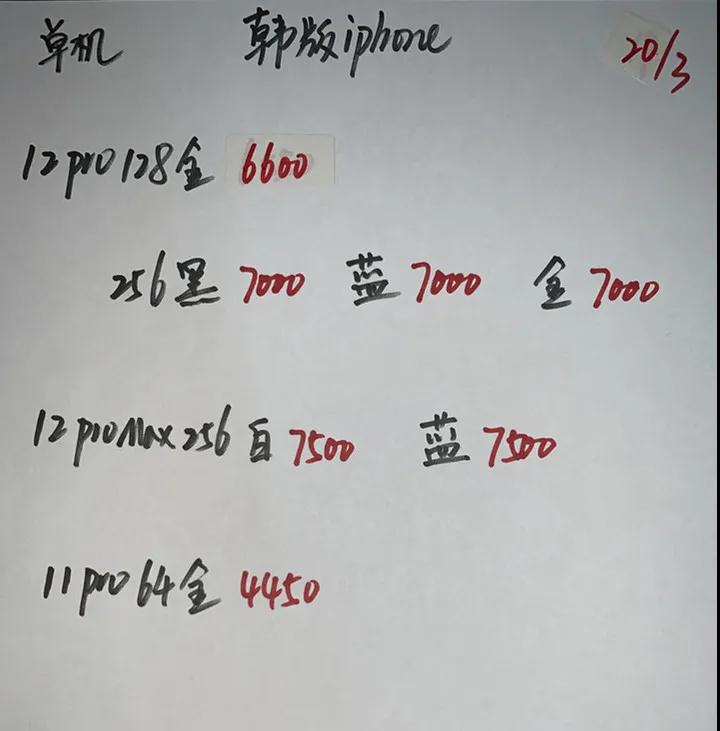 单机 韩版iphone 20/3
12pro128金 6600
256黑 7000 蓝 7000 金 7000
12proMax256白 7500 蓝 7500
11pro64金 4450